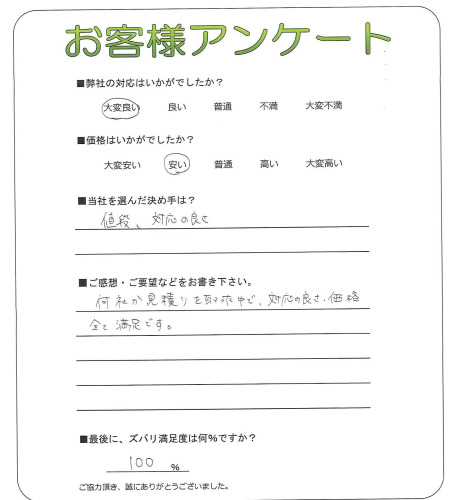 お客様アンケート
■弊社の対応はいかがでしたか？
大変良い 良い 普通 不満 大変不満
■価格はいかがでしたか？
大変安い 安い 普通 高い 大変高い
■当社を選んだ決め手は？
値段、対応の良さ
■ご感想・ご要望などをお書き下さい。
何社か見積りを取る中で、対応の良さ・価格
全て満足です。
■最後に、ズバリ満足度は何%ですか？
100 %
ご協力頂き、誠にありがとうございました。